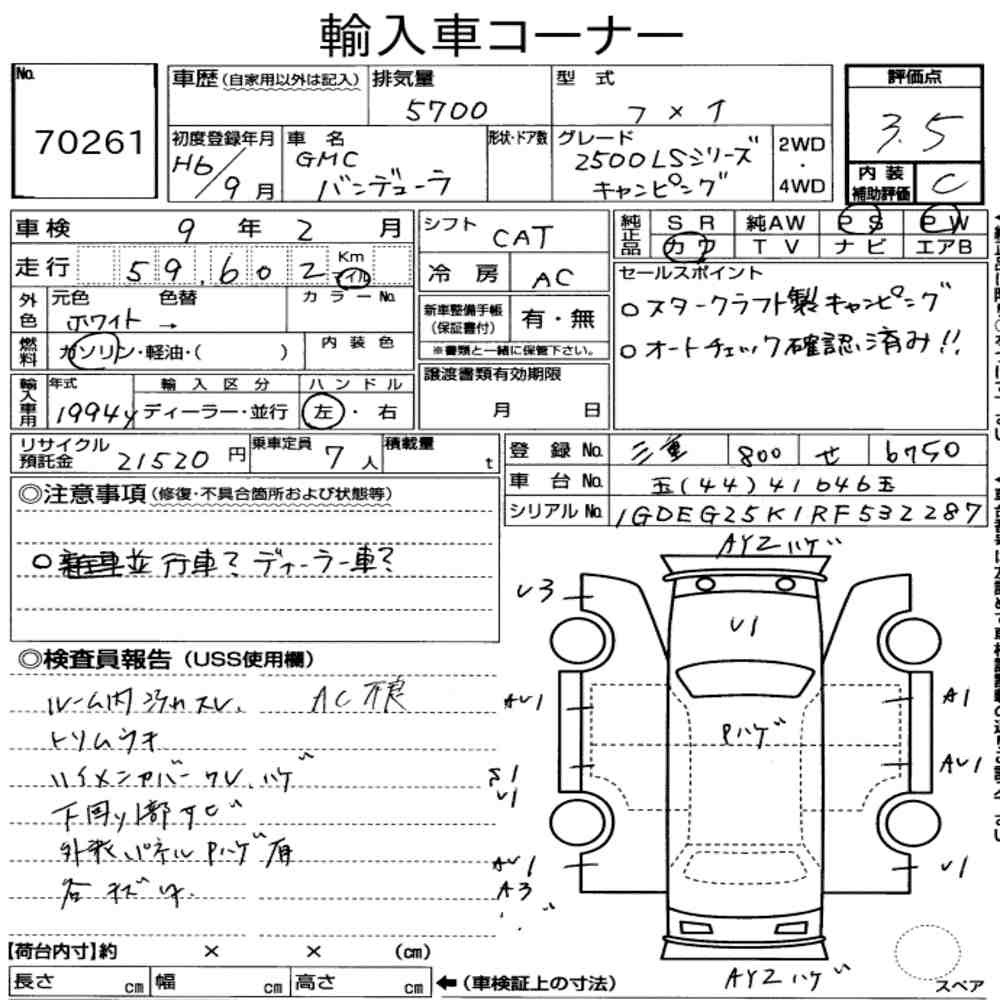 輸入車コーナー
No.
70261
車歴 (自家用以外は記入)
排気量
5700
型 式
フメイ
評価点
3.5
内装補助評価
C
初度登録年月
H6/9月
車 名
GMC
バンデューラ
形状・ドア数
グレード
2500LSシリーズ
キャンピング
2WD
・
4WD
車検 9 年 2 月
走行 59,602 Km マイル
シフト CAT
冷房 AC
純正品
SR 純AW PS PW
カワ TV ナビ エアB
外色 元色 色替 カラーNo.
ホワイト →
燃料 ガソリン・軽油・( )
内装色
新車整備手帳(保証書付) 有・無
※書類と一緒に保管下さい。
セールスポイント
○スタークラフト製キャンピング
○オートチェック確認済み!!
輸入車用 年式 輸入区分 ハンドル
1994y ディーラー・並行 左・右
譲渡書類有効期限
月 日
リサイクル預託金 21520円
乗車定員 7人
積載量 t
登録No. 三重 800 せ 6750
車台No. 玉(44)41046玉
シリアルNo. 1GDEG25K1RF532287
◎注意事項 (修復・不具合箇所および状態等)
○並行車? ディーラー車?
◎検査員報告 (USS使用欄)
ルーム内汚れスレ、 AC不良
トリムウキ
ハゲ
下回り部サビ
外装パネルPハゲ有
各キズ
AYZハゲ
U3
U1
AU1
A1
Pハゲ
S1
U1
AU1
AU1
A3
U1
AYZハゲ
スペア
【荷台内寸】約 × × (cm)
長さ cm 幅 cm 高さ cm ←(車検証上の寸法)